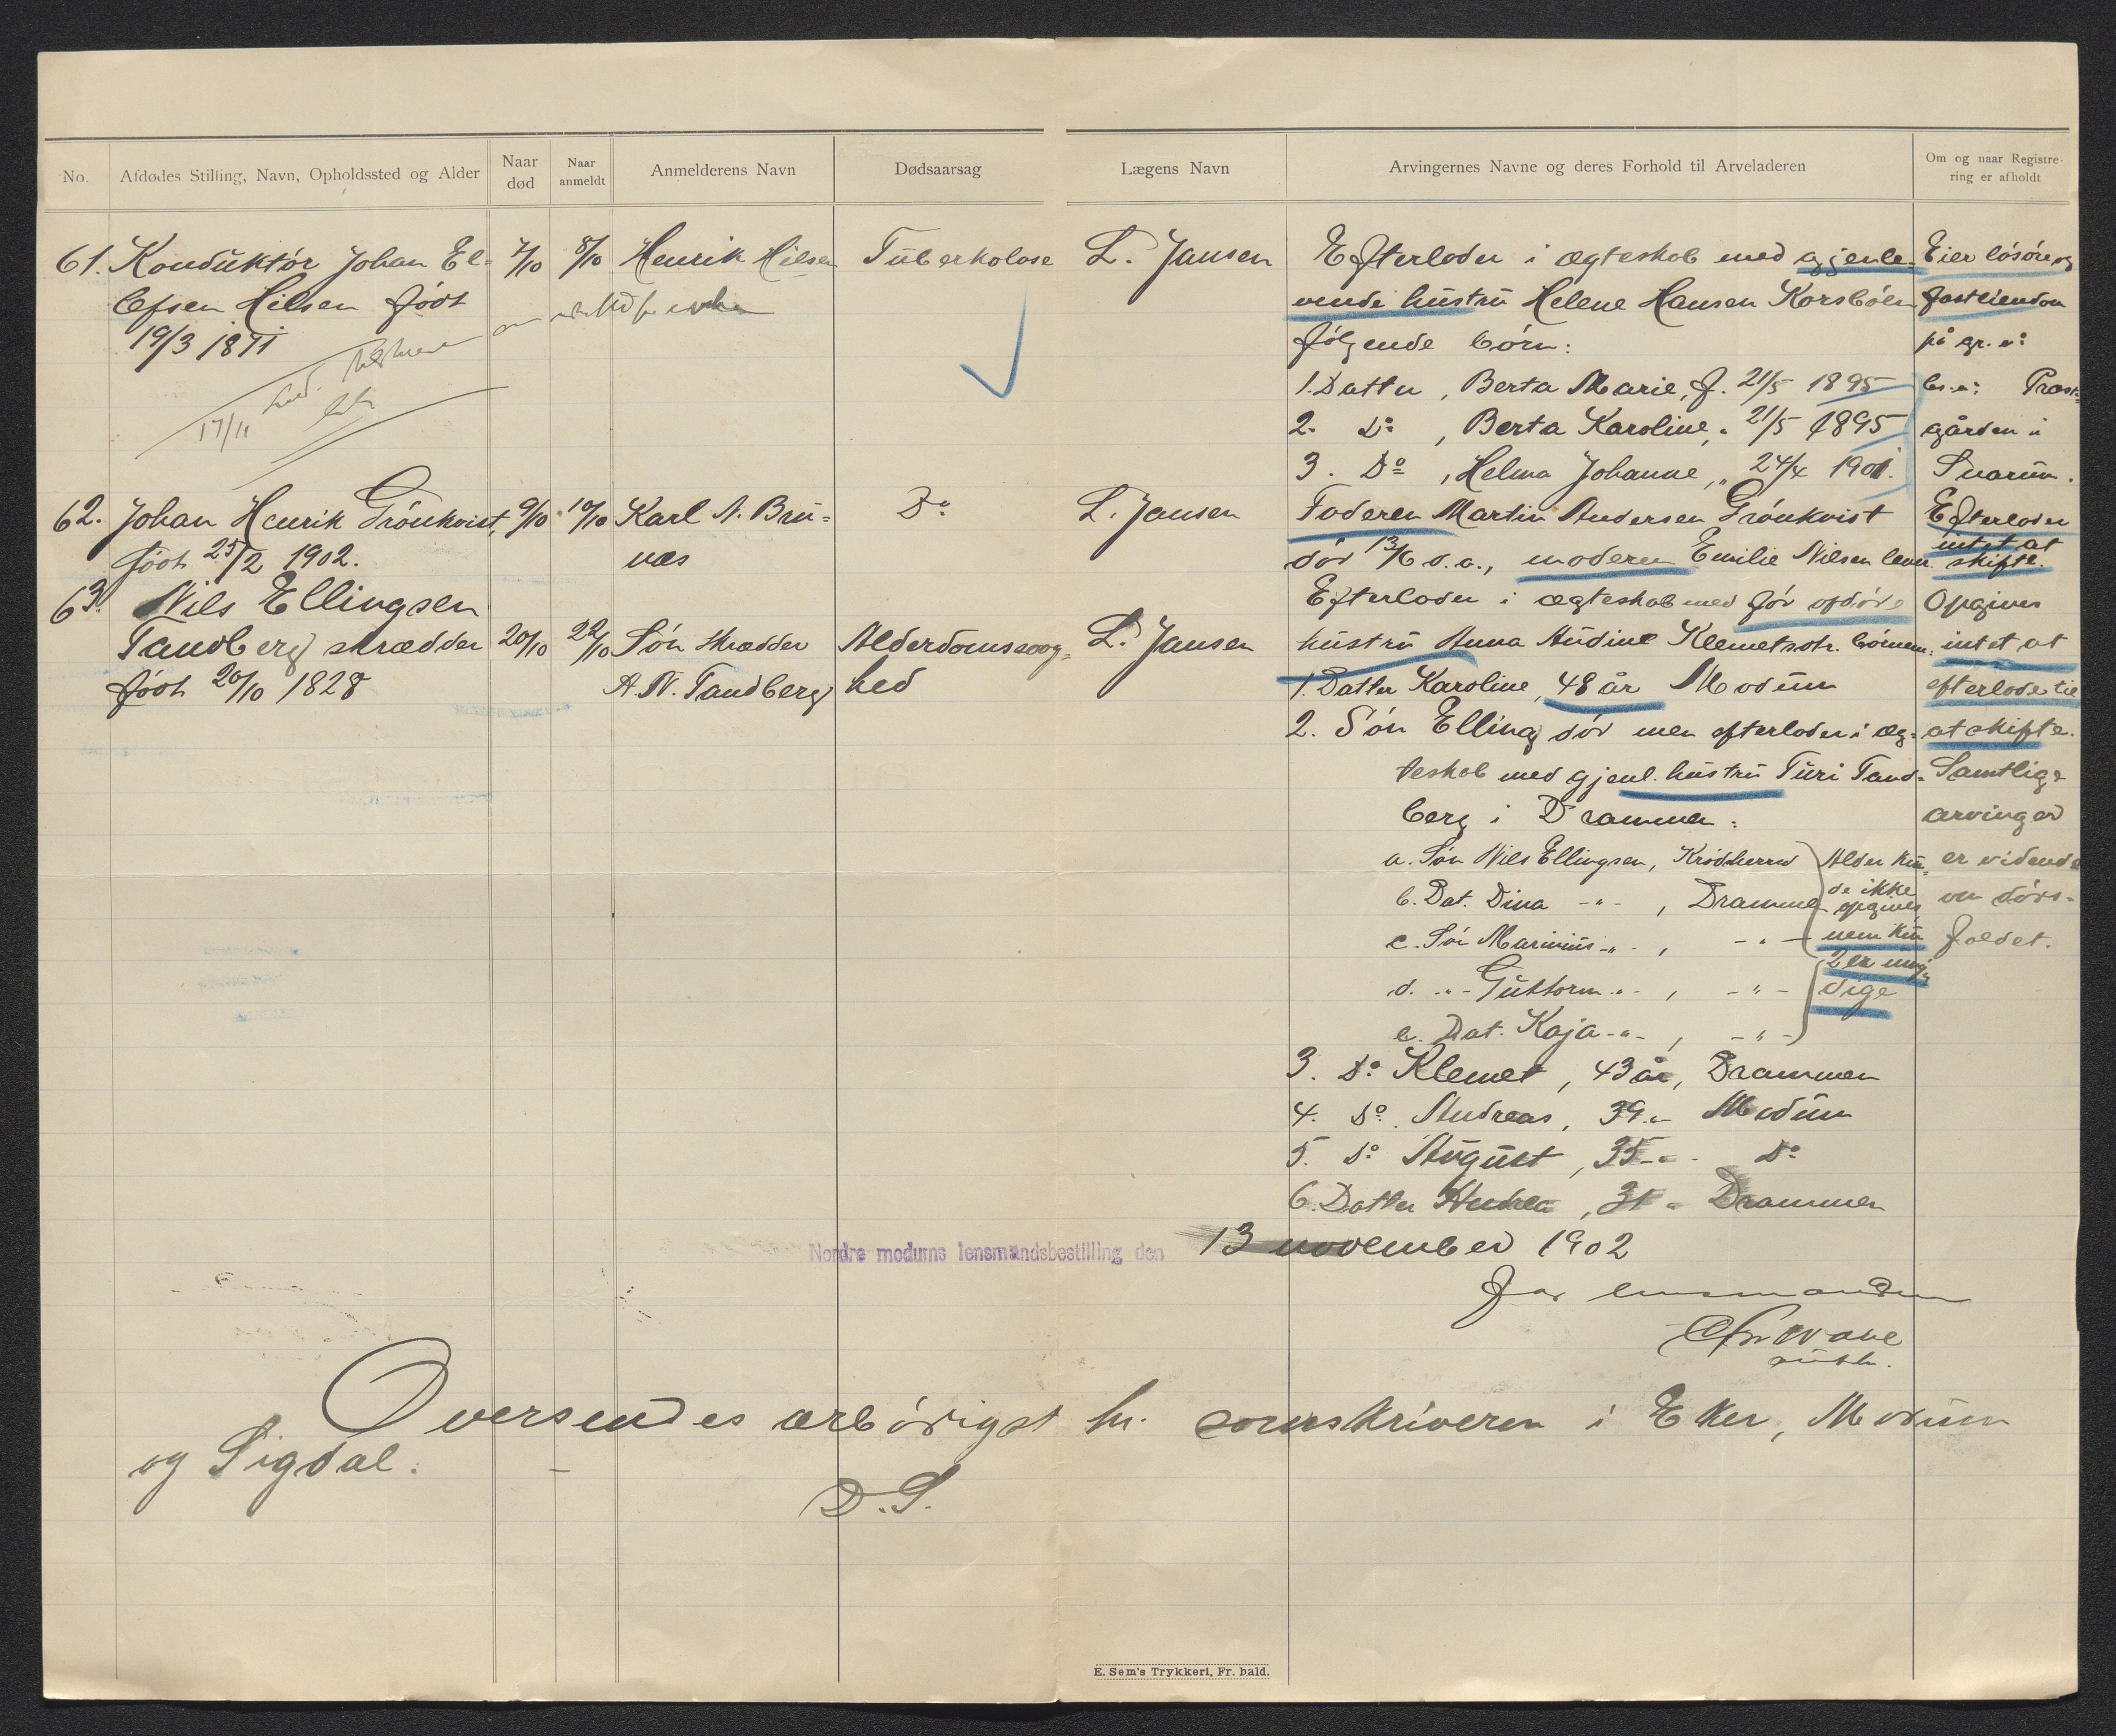 No. Afdødes Stilling, Navn, Opholdssted og Alder Naar død Naar anmeldt Anmelderens Navn Dødsaarsag Lægens Navn Arvingernes Navne og deres Forhold til Arveladeren Om og naar Registrering er afholdt
61. Konduktør Johan El=
lefsen Hilsen født
19/3 1871
7/10
8/10
Henrik Hilsen
Tuberkolose
L. Jansen
Efterlader i ægteskab med gjenle=
vende hustru Helene Hansen Korsbøen
følgende børn:
1. Datter, Berta Marie, f. 21/5 1895
2. Do, Berta Karoline, " 21/5 1895
3. Do, Helma Johanne, " 24/4 1901.
Eier løsøre og
fasteiendom
på gr. n:
br. n: Præst=
gården i
Snarum.
17/11
62. Johan Henrik Grönkvist,
født 25/2 1902.
9/10
10/10
Karl A. Bru=
næs
Do
L. Jansen
Faderen Martin Andersen Grönkvist
død 13/6 d.a., moderen Emilie Nilsen lever.
Efterlader
intet at
skifte.
63. Nils Ellingsen
Tandberg, skrædder
født 20/10 1828
20/10
22/10
Søn skrædder
A. N. Tandberg
Alderdomssvag=
hed
L. Jansen
Efterlader i ægteskab med før afdøde
hustru Anna Audine Klemetsdtr. børnene:
1. Datter Karoline, 48 år Modum
2. Søn Elling død men efterlader i æg=
teskab med gjenl. hustru Turi Tand=
berg i Drammen:
a. Søn Nils Ellingsen, Krødsherred
b. Dat. Dina -"-, Drammen
c. Søn Marinius -"-, -"-
d. -"- Guttorm -"-, -"-
e. Dat. Kaja -"-, -"-
Alder kun=
de ikke
opgives
2 er myn=
dige
3. Do Klemet, 43 år, Drammen
4. Do Andreas, 39 -"- Modum
5. Do August, 35 -"- Do
6. Datter Andrea, 31 " Drammen
Opgives
intet at
efterlade til
at skifte.
Samtlige
arvinger
er vidende
om døds=
faldet.
Nordre modums lensmandsbestilling den 13 november 1902
For lensmanden
Oversendes ærbødigst hr. sorenskriveren i Eker, Modum
og Sigdal.
D.S.
E. Sem's Trykkeri, Fr. hald.